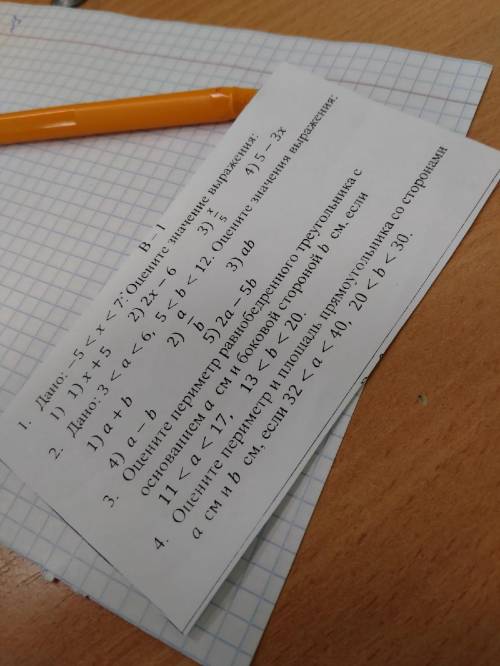 В – 1
1. Дано: −5 < x < 7: Оцените значение выражения:
1) 1) x + 5 2) 2x − 6 3) x/5 4) 5 − 3x
2. Дано: 3 < a < 6, 5 < b < 12. Оцените значения выражения:
1) a + b 2) a/b 3) ab
4) a − b 5) 2a − 5b
3. Оцените периметр равнобедренного треугольника с
основанием a см и боковой стороной b см, если
11 < a < 17, 13 < b < 20.
4. Оцените периметр и площадь прямоугольника со сторонами
a см и b см, если 32 < a < 40, 20 < b < 30.